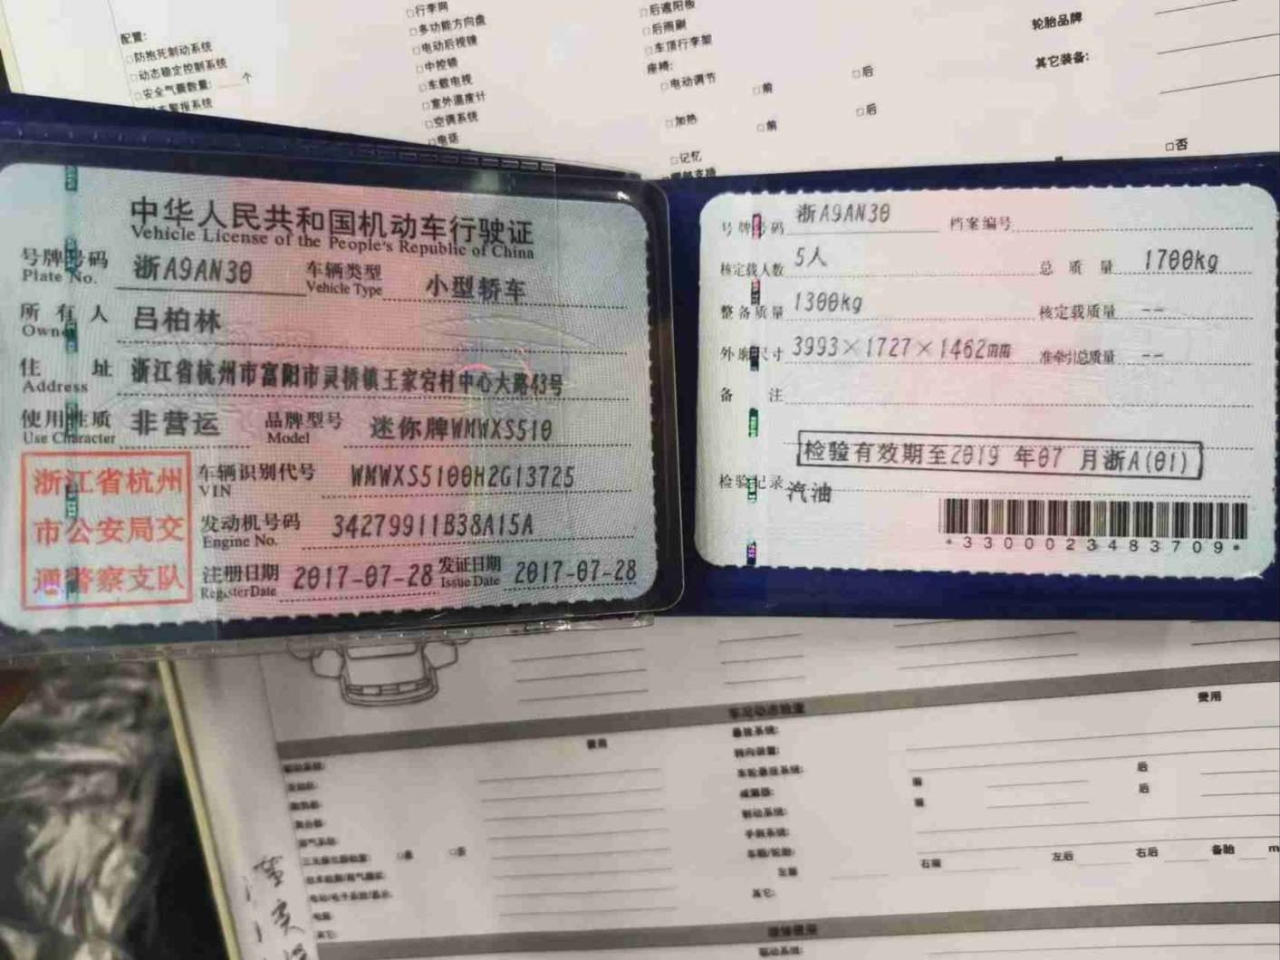 配置:
□防抱死制动系统
□动态稳定控制系统
□安全气囊数量: 个
□行李网
□多功能方向盘
□电动后视镜
□中控锁
□车载电视
□室外温度计
□空调系统
□电话
□后遮阳板
□后雨刷
□车顶行李架
座椅:
□电动调节 □前 □后
□加热 □前 □后
□记忆
□否
轮胎品牌
其它装备:
中华人民共和国机动车行驶证
Vehicle License of the People's Republic of China
号牌号码 浙A9AN30 车辆类型 小型轿车
Plate No. Vehicle Type
所有人 吕柏林
Owner
住址 浙江省杭州市富阳市灵桥镇王家宕村中心大路43号
Address
使用性质 非营运 品牌型号 迷你牌WMWXS510
Use Character Model
浙江省杭州
市公安局交
通警察支队
车辆识别代号 WMWXS5100H2G13725
VIN
发动机号码 34279911B38A15A
Engine No.
注册日期 2017-07-28 发证日期 2017-07-28
Register Date Issue Date
号牌号码 浙A9AN30 档案编号
核定载人数 5人 总质量 1700kg
整备质量 1300kg 核定载质量 --
外廓尺寸 3993×1727×1462mm 准牵引总质量 --
备注
检验有效期至2019年07月浙A(01)
检验记录
汽油
*3300023483709*
费用
费用
悬挂系统:
转向装置:
减震器:
制动系统:
手刹系统:
车辆/轮胎:
后
后
左后 右后 备胎
其它:
驱动系统: